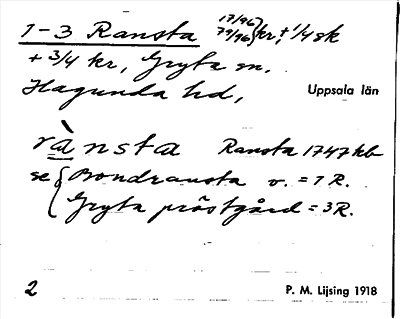 1-3 Ransta 17/96 79/96 } kr, + 1/4 sk
+ 3/4 kr, Gryta sn.
Hagunda hd, Uppsala län
rànsta Ransta 1747 kb
se { Bondransta o. = 1 R.
Gryta prästgård = 3 R.
2 P. M. Lijsing 1918